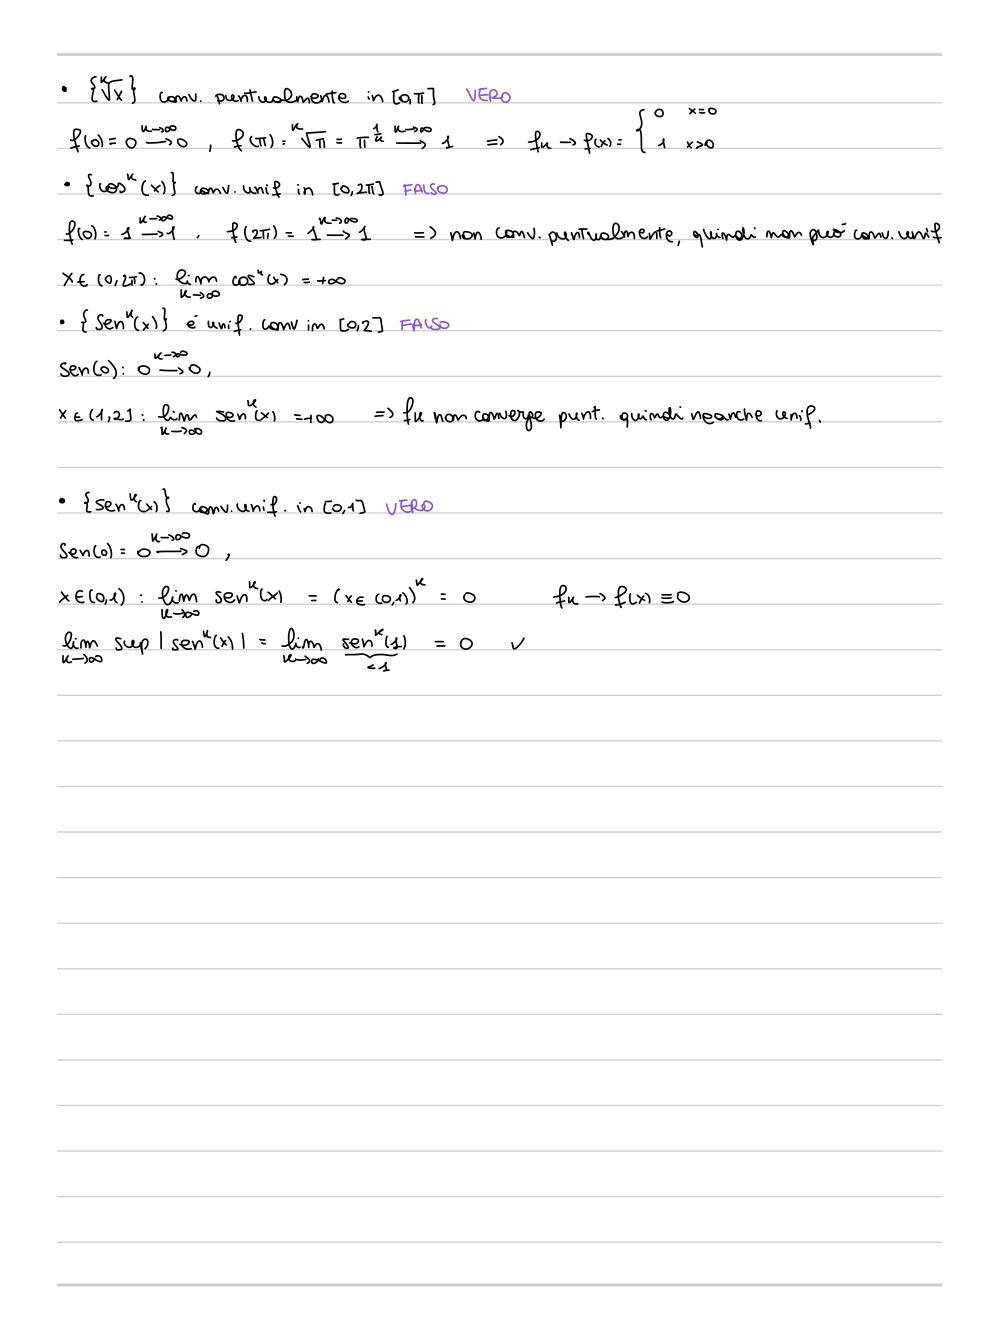 • {ᵏ√x} conv. puntualmente in [0,π] VERO
f(0) = 0 --k→∞--> 0 , f(π) = ᵏ√π = π^(1/k) --k→∞--> 1 => fₖ → f(x) = { 0 x=0 ; 1 x>0
• {cosᵏ(x)} conv. unif in [0,2π] FALSO
f(0) = 1 --k→∞--> 1 . f(2π) = 1 --k→∞--> 1 => non conv. puntualmente, quindi non può conv. unif
x∈(0,2π) : lim k→∞ cosᵏ(x) = +∞
• {senᵏ(x)} é unif. conv in [0,2] FALSO
sen(0) : 0 --k→∞--> 0 ,
x∈(1,2] : lim k→∞ senᵏ(x) = +∞ => fₖ non converge punt. quindi neanche unif.
• {senᵏ(x)} conv. unif. in [0,1] VERO
sen(0) = 0 --k→∞--> 0 ,
x∈(0,1) : lim k→∞ senᵏ(x) = (x∈(0,1))ᵏ = 0 fₖ → f(x) ≡ 0
lim k→∞ sup |senᵏ(x)| = lim k→∞ senᵏ(1) = 0 ✓
<1